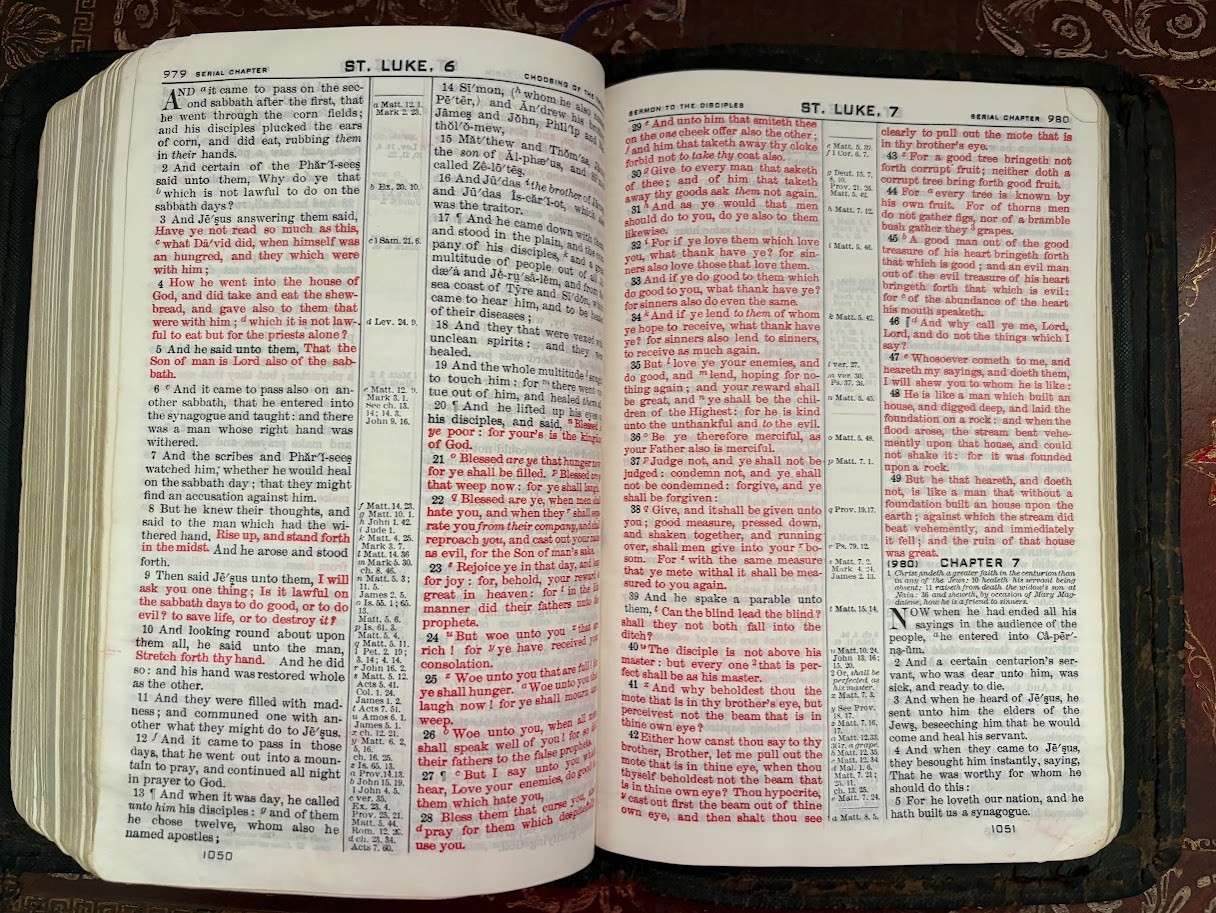 979 SERIAL CHAPTER
ST. LUKE, 6
CHOOSING OF THE
AND ᵃit came to pass on the sec-
ond sabbath after the first, that
he went through the corn fields;
and his disciples plucked the ears
of corn, and did eat, rubbing them
in their hands.
2 And certain of the Phăr´ĭ-sees
said unto them, Why do ye that
ᵇwhich is not lawful to do on the
sabbath days?
3 And Jē´ṣus answering them said,
Have ye not read so much as this,
ᶜwhat Dā´vid did, when himself was
an hungred, and they which were
with him;
4 How he went into the house of
God, and did take and eat the shew-
bread, and gave also to them that
were with him; ᵈwhich it is not law-
ful to eat but for the priests alone?
5 And he said unto them, That the
Son of man is Lord also of the sab-
bath.
6 ᵉAnd it came to pass also on an-
other sabbath, that he entered into
the synagogue and taught: and there
was a man whose right hand was
withered.
7 And the scribes and Phăr´ĭ-sees
watched him, whether he would heal
on the sabbath day; that they might
find an accusation against him.
8 But he knew their thoughts, and
said to the man which had the wi-
thered hand, Rise up, and stand forth
in the midst. And he arose and stood
forth.
9 Then said Jē´ṣus unto them, I will
ask you one thing; Is it lawful on
the sabbath days to do good, or to do
evil? to save life, or to destroy it?
10 And looking round about upon
them all, he said unto the man,
Stretch forth thy hand. And he did
so: and his hand was restored whole
as the other.
11 And they were filled with mad-
ness; and communed one with an-
other what they might do to Jē´ṣus.
12 ᶠAnd it came to pass in those
days, that he went out into a moun-
tain to pray, and continued all night
in prayer to God.
13 ¶ And when it was day, he called
unto him his disciples: ᵍand of them
he chose twelve, whom also he
named apostles;
a Matt. 12. 1.
Mark 2. 23.
b Ex. 20. 10.
c 1 Sam. 21. 6.
d Lev. 24. 9.
e Matt. 12. 9.
Mark 3. 1.
See ch. 13.
14; 14. 3.
John 9. 16.
f Matt. 14. 23.
g Matt. 10. 1.
h John 1. 42.
i Jude 1.
k Matt. 4. 25.
Mark 3. 7.
l Matt. 14. 36
m Mark 5. 30.
ch. 8. 46.
n Matt. 5. 3;
11. 5.
James 2. 5.
o Is. 55. 1; 65.
13.
Matt. 5. 6.
p Is. 61. 3.
Matt. 5. 4.
q Matt. 5. 11.
1 Pet. 2. 19;
3. 14; 4. 14.
r John 16. 2.
s Matt. 5. 12.
Acts 5. 41.
Col. 1. 24.
James 1. 2.
t Acts 7. 51.
u Amos 6. 1.
James 5. 1.
x ch. 12. 21.
y Matt. 6. 2,
5, 16.
ch. 16. 25.
z Is. 65. 13.
a Prov. 14. 13.
b John 15. 19.
1 John 4. 5.
c ver. 35.
Ex. 23. 4.
Prov. 25. 21.
Matt. 5. 44.
Rom. 12. 20.
d ch. 23. 34.
Acts 7. 60.
14 Sī´mon, (ʰwhom he also
Pē´tẽr,) and Ăn´drew his
Jāmeṣ and Jŏhn, Phĭl´ĭp and
thŏl´ō-mew,
15 Măt´thew and Thŏm´as,
the son of Ăl-phæ´us, and
called Zē-lō´tēṣ,
16 And Jū´das ⁱthe brother of
and Jū´das Is-căr´ĭ-ot, which
was the traitor.
17 ¶ And he came down with
and stood in the plain, and the
pany of his disciples, ᵏand a
multitude of people out of all
dæ´ȧ and Jē-rụ´sȧ-lĕm, and from
sea coast of Tȳre and Sī´dŏn,
came to hear him, and to be
of their diseases;
18 And they that were vexed
unclean spirits: and they
healed.
19 And the whole multitude ˡ
to touch him: for ᵐthere went
tue out of him, and healed them
20 ¶ And he lifted up his eyes
his disciples, and said, ⁿBlessed
ye poor: for your's is the
of God.
21 ᵒBlessed are ye that hunger
for ye shall be filled. ᵖBlessed
that weep now: for ye shall
22 ᑫBlessed are ye, when men
hate you, and when they ʳshall
rate you from their company, and
reproach you, and cast out your
as evil, for the Son of man's sake.
23 ˢRejoice ye in that day, and
for joy: for, behold, your reward
great in heaven: for ᵗin the
manner did their fathers unto
prophets.
24 ᵘBut woe unto you ˣthat
rich! for ʸye have received
consolation.
25 ᶻWoe unto you that are full!
ye shall hunger. ᵃWoe unto you
laugh now! for ye shall mourn
weep.
26 ᵇWoe unto you, when all
shall speak well of you! for so
their fathers to the false prophets.
27 ¶ ᶜBut I say unto you
hear, Love your enemies, do good
them which hate you,
28 Bless them that curse you,
ᵈpray for them which despitefully
use you.
1050
SERMON TO THE DISCIPLES
ST. LUKE, 7
SERIAL CHAPTER 980
29 ᵉAnd unto him that smiteth thee
on the one cheek offer also the other;
ᶠand him that taketh away thy cloke
forbid not to take thy coat also.
30 ᵍGive to every man that asketh
of thee; and of him that taketh
away thy goods ask them not again.
31 ʰAnd as ye would that men
should do to you, do ye also to them
likewise.
32 ⁱFor if ye love them which love
you, what thank have ye? for sin-
ners also love those that love them.
33 And if ye do good to them which
do good to you, what thank have ye?
for sinners also do even the same.
34 ᵏAnd if ye lend to them of whom
ye hope to receive, what thank have
ye? for sinners also lend to sinners,
to receive as much again.
35 But ˡlove ye your enemies, and
do good, and ᵐlend, hoping for no-
thing again; and your reward shall
be great, and ⁿye shall be the chil-
dren of the Highest: for he is kind
unto the unthankful and to the evil.
36 ᵒBe ye therefore merciful, as
your Father also is merciful.
37 ᵖJudge not, and ye shall not be
judged: condemn not, and ye shall
not be condemned: forgive, and ye
shall be forgiven:
38 ᑫGive, and it shall be given unto
you; good measure, pressed down,
and shaken together, and running
over, shall men give into your ʳbo-
som. For ˢwith the same measure
that ye mete withal it shall be mea-
sured to you again.
39 And he spake a parable unto
them, ᵗCan the blind lead the blind?
shall they not both fall into the
ditch?
40 ᵘThe disciple is not above his
master: but every one ²that is per-
fect shall be as his master.
41 ˣAnd why beholdest thou the
mote that is in thy brother's eye, but
perceivest not the beam that is in
thine own eye?
42 Either how canst thou say to thy
brother, Brother, let me pull out the
mote that is in thine eye, when thou
thyself beholdest not the beam that
is in thine own eye? Thou hypocrite,
ʸcast out first the beam out of thine
own eye, and then shalt thou see
e Matt. 5. 39.
f 1 Cor. 6. 7.
g Deut. 15. 7,
8, 10.
Prov. 21. 26.
Matt. 5. 42.
h Matt. 7. 12.
i Matt. 5. 46.
k Matt. 5. 42.
l ver. 27.
m ver. 30.
Ps. 37. 26.
n Matt. 5. 45.
o Matt. 5. 48.
p Matt. 7. 1.
q Prov. 19. 17.
r Ps. 79. 12.
s Matt. 7. 2.
Mark 4. 24.
James 2. 13.
t Matt. 15. 14.
u Matt. 10. 24.
John 13. 16;
15. 20.
2 Or, shall be
perfected as
his master.
x Matt. 7. 3.
y See Prov.
18. 17.
z Matt. 7. 16,
17.
a Matt. 12. 33.
3 Gr. a grape.
b Matt. 12. 35.
c Matt. 12. 34
d Mal. 1. 6.
Matt. 7. 21;
25. 11.
ch. 13. 25.
e Matt. 7. 24.
a Matt. 8. 5.
clearly to pull out the mote that is
in thy brother's eye.
43 ᶻFor a good tree bringeth not
forth corrupt fruit; neither doth a
corrupt tree bring forth good fruit.
44 For ᵃevery tree is known by
his own fruit. For of thorns men
do not gather figs, nor of a bramble
bush gather they ³grapes.
45 ᵇA good man out of the good
treasure of his heart bringeth forth
that which is good; and an evil man
out of the evil treasure of his heart
bringeth forth that which is evil:
for ᶜof the abundance of the heart
his mouth speaketh.
46 ¶ ᵈAnd why call ye me, Lord,
Lord, and do not the things which I
say?
47 ᵉWhosoever cometh to me, and
heareth my sayings, and doeth them,
I will shew you to whom he is like:
48 He is like a man which built an
house, and digged deep, and laid the
foundation on a rock: and when the
flood arose, the stream beat vehe-
mently upon that house, and could
not shake it: for it was founded
upon a rock.
49 But he that heareth, and doeth
not, is like a man that without a
foundation built an house upon the
earth; against which the stream did
beat vehemently, and immediately
it fell; and the ruin of that house
was great.
(980) CHAPTER 7
1 Christ findeth a greater faith in the centurion than
in any of the Jews: 10 healeth his servant being
absent: 11 raiseth from death the widow's son at
Nain: 36 and sheweth, by occasion of Mary Mag-
dalene, how he is a friend to sinners.
NOW when he had ended all his
sayings in the audience of the
people, ᵃhe entered into Cȧ-pẽr´-
nạ-ŭm.
2 And a certain centurion's ser-
vant, who was dear unto him, was
sick, and ready to die.
3 And when he heard of Jē´ṣus, he
sent unto him the elders of the
Jews, beseeching him that he would
come and heal his servant.
4 And when they came to Jē´ṣus,
they besought him instantly, saying,
That he was worthy for whom he
should do this:
5 For he loveth our nation, and he
hath built us a synagogue.
1051